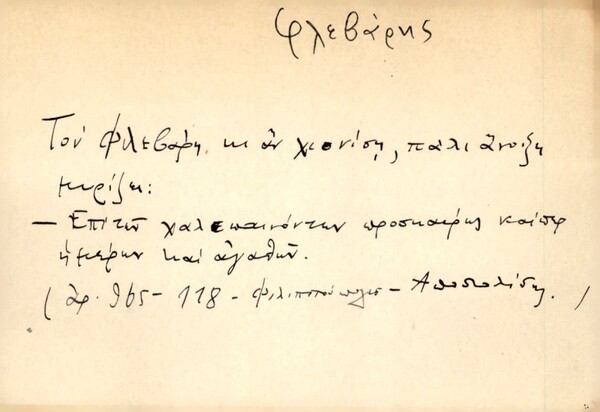 Φλεβάρης
Τον Φλεβάρη κι ἂν χιονίση, πάλι ἄνοιξη
μυρίζει:
— Ἐπὶ τῶν χαλεπαινόντων προσκαίρως καίπερ
ἡμέρων καὶ ἀγαθῶν.
(ἀρ. 965 - 118 - Φιλιππούπολις - Ἀποστολίδης.)